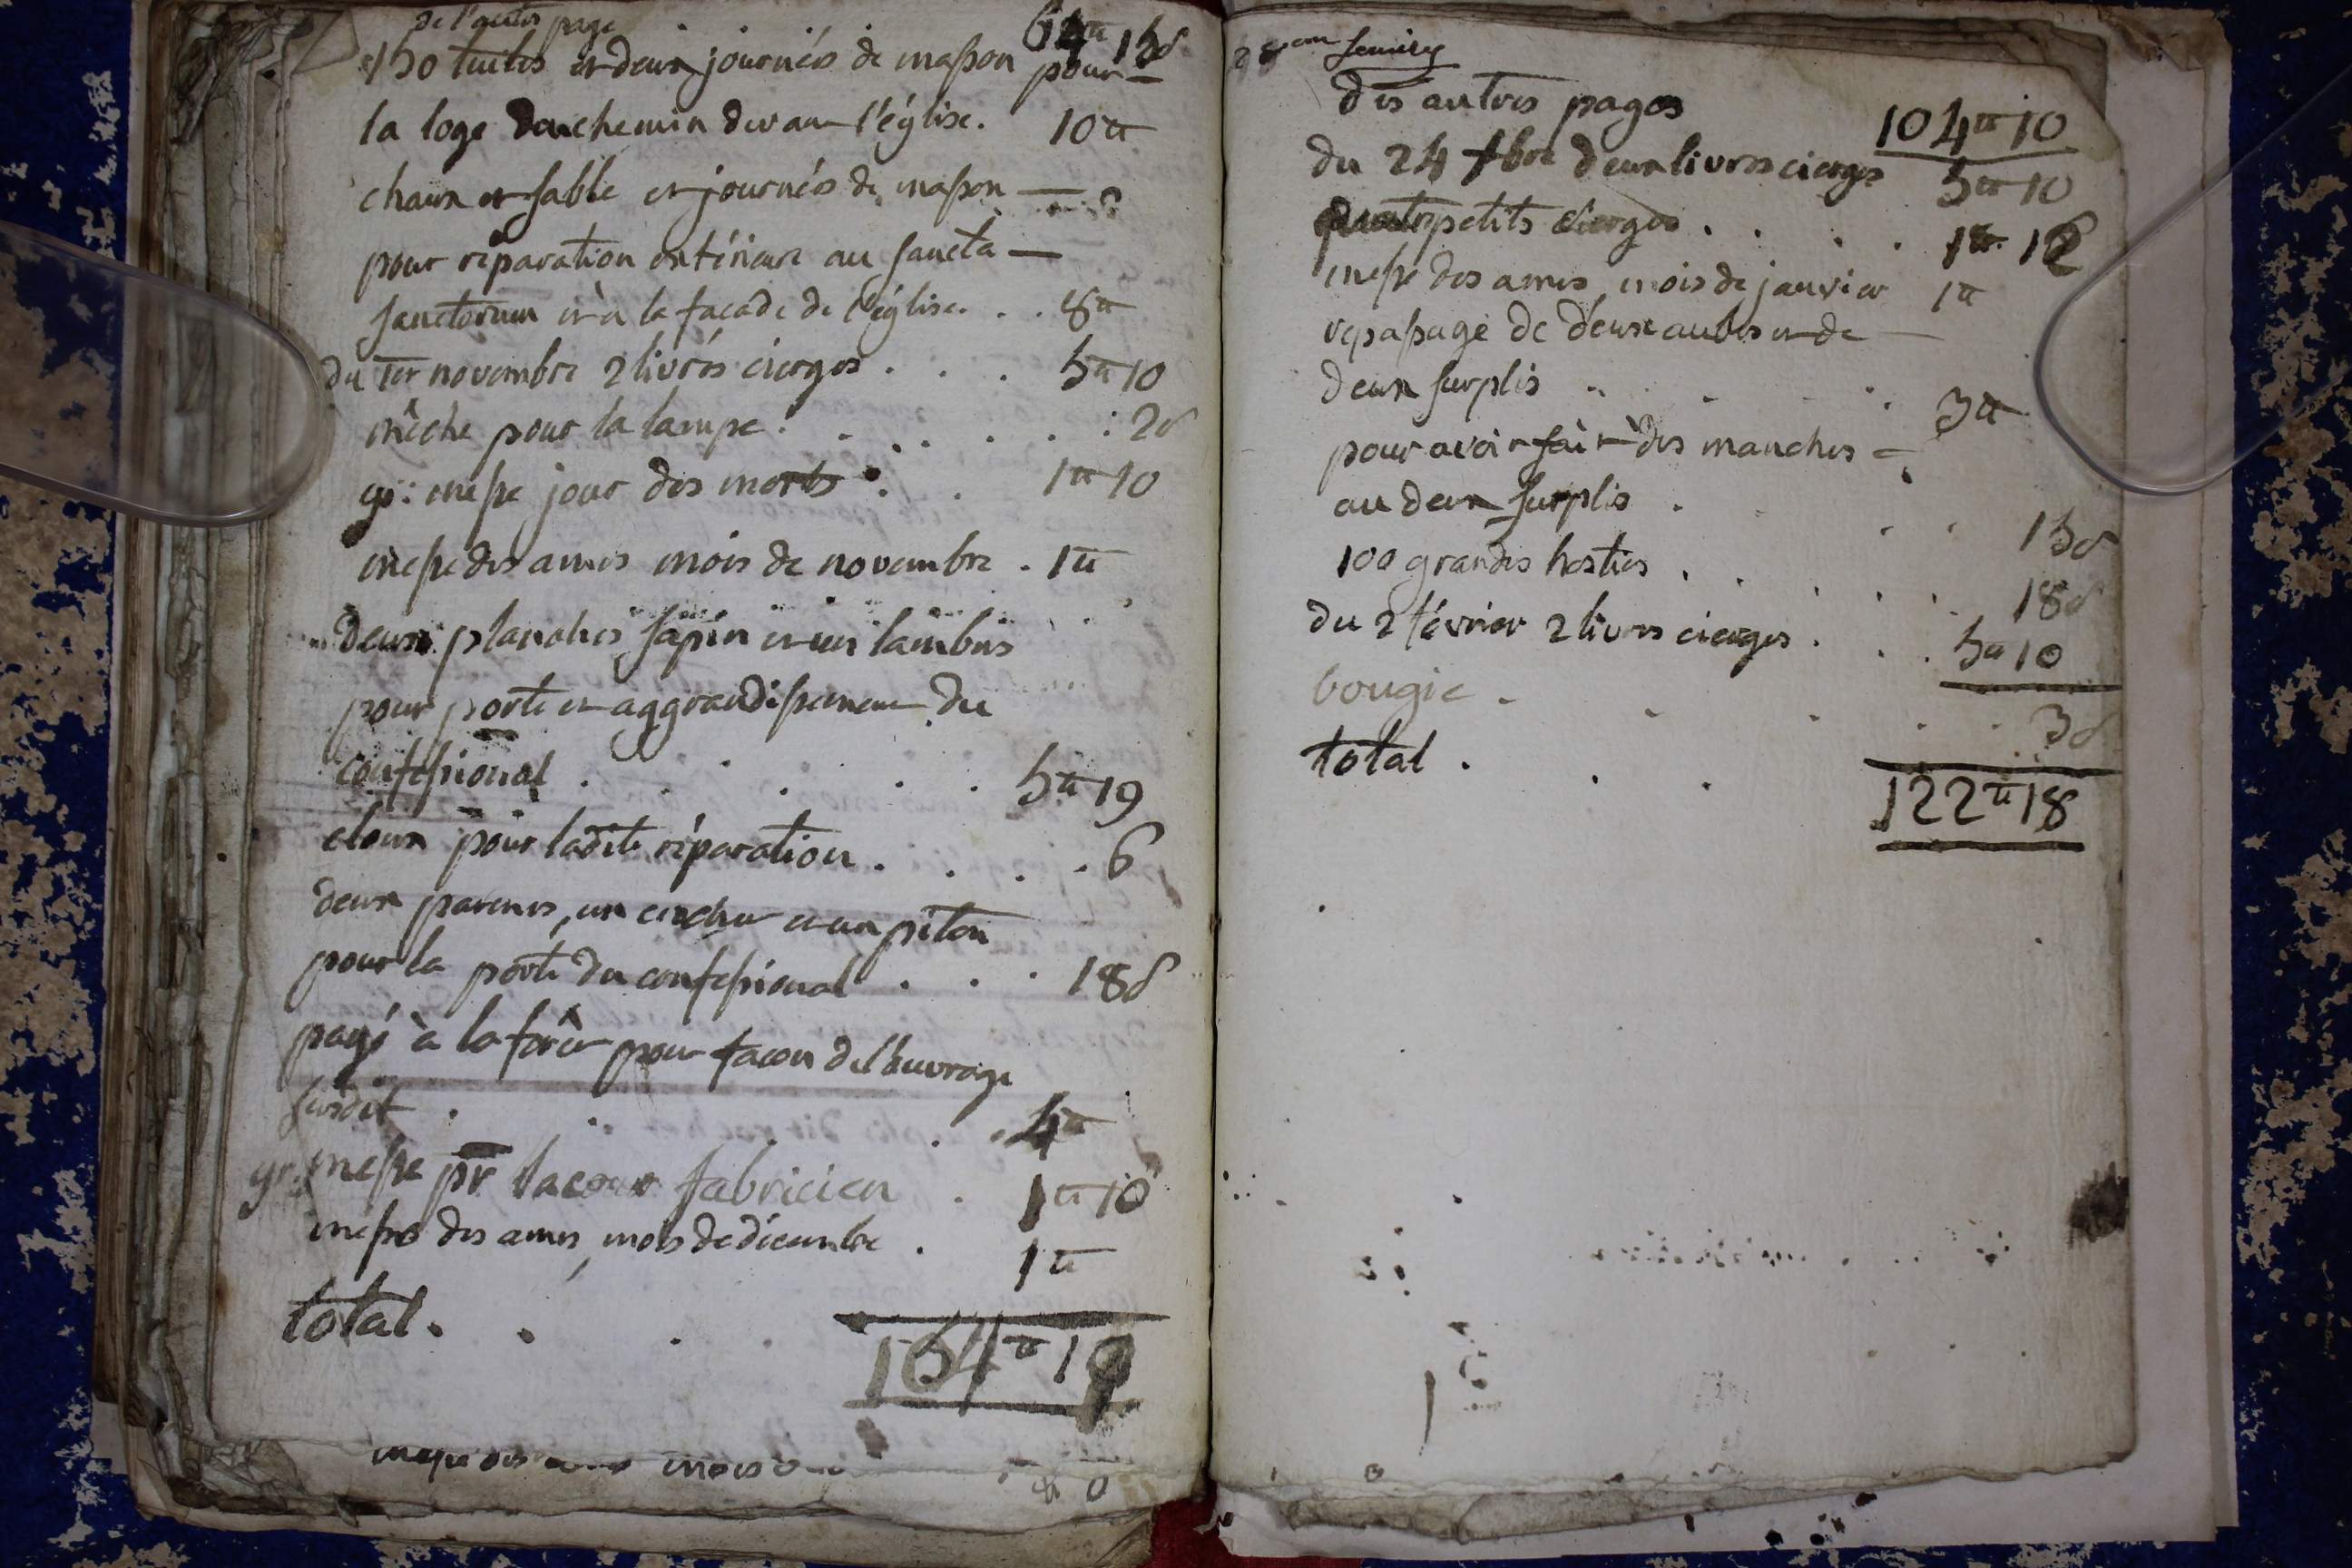 de l'autre page 64tt 15s
150 tuiles et deux journées de masson pour
la loge du chemin devant l'église. 10tt
chaux et sable et journées de masson
pour réparation extérieure au sancta
sanctorum et à la facade de l'église. . . 8tt
du 1er novembre 2 livres cierges . . . 5tt 10
mêche pour la lampe . . . . . : 2s
gr: messe jour des morts . . 1tt 10
messe des ames mois de novembre . 1tt
deux planches sapin et un lambris
pour porte et aggrandissement du
confessional . . . . . 5tt 19
cloux pour ladite réparation . . . . 6
deux paremes, un crochet et un piton
pour la porte du confessional . . . 18s
payé à pour facon de l'ouvrage
susdit . . . . 4tt
gr. messe pr lacour fabricien . 1tt 10
messe des ames, mois de décembre . 1tt
total . . . . 104tt 10
messe des ames mois
des autres pages 104tt 10
du 24 xbre deux livres cierges 5tt 10
quatre petits cierges . . . 1tt 12
messe des ames, mois de janvier 1tt
repassage de deux aubes et de
deux surplis . . . . 3tt
pour avoir fait des manches =
au deux surplis . . . 15s
100 grandes hosties . . . . . 18s
du 2 février 2 livres cierges . . . 5tt 10
bougie . . . . . 3s
total . . . 122tt 18